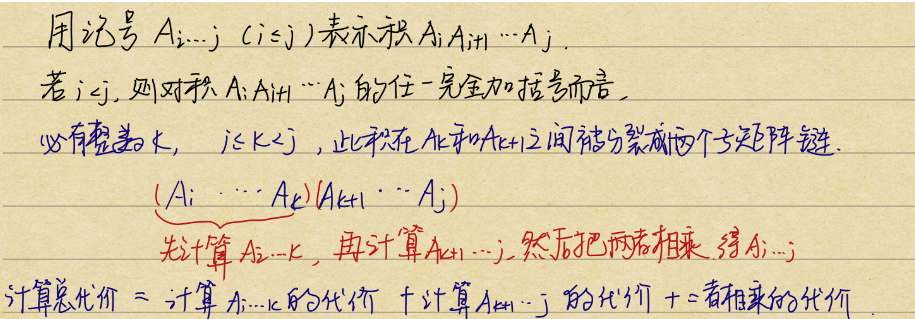 用记号 A i…j (i≤j) 表示积 AiAi+1…Aj.
若 i<j, 则对积 AiAi+1…Aj 的任一完全加括号而言,
必有整数 k, i≤k<j, 此积在 Ak和Ak+1之间被分裂成两个子矩阵链.
(Ai ‥‥ Ak)(Ak+1 ‥‥ Aj)
先计算 Ai…k, 再计算 Ak+1…j, 然后把两者相乘 得 Ai…j
计算总代价 = 计算 Ai…k 的代价 + 计算 Ak+1…j 的代价 + 二者相乘的代价.